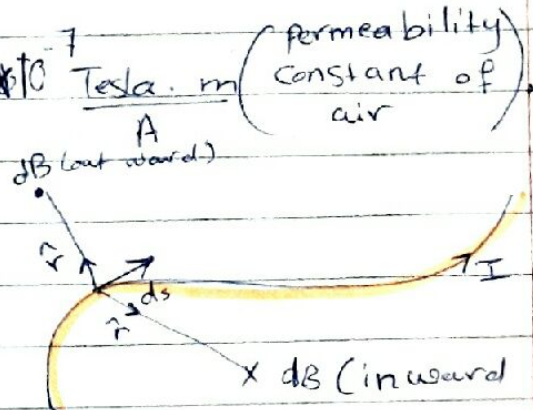 10⁻⁷ Tesla. m / A (permeability
constant of
air)
dB (out ward)
r̂
ds
I
r̂
x dB (inward